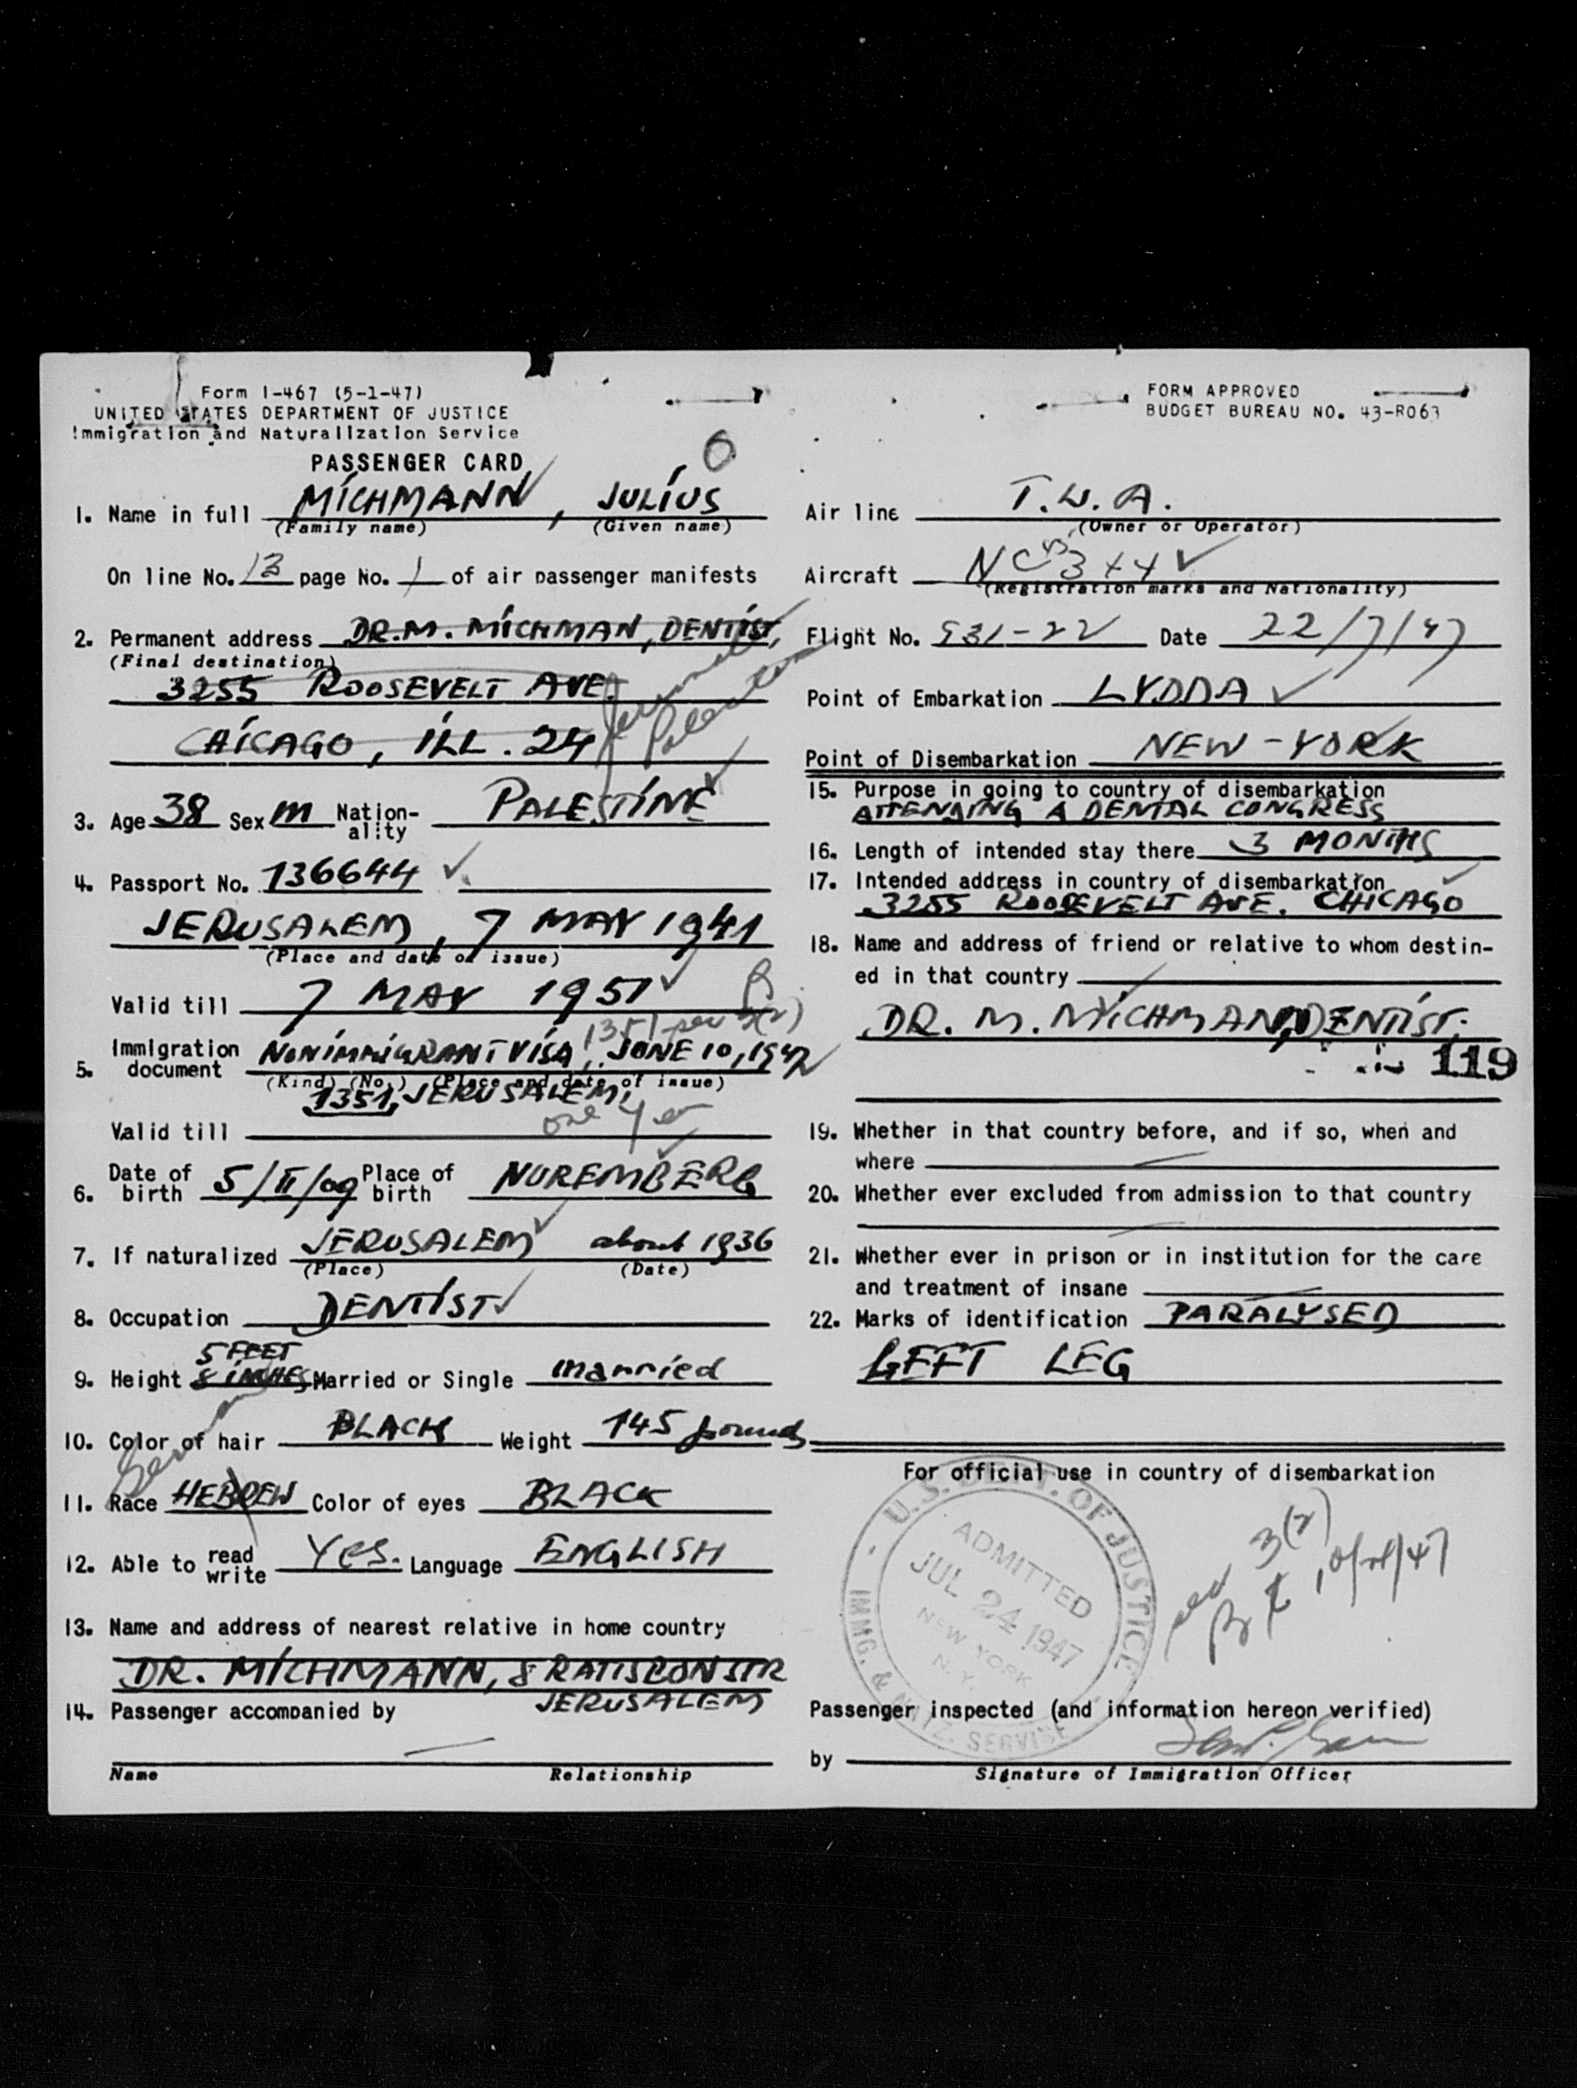 Form I-467 (5-1-47)
UNITED STATES DEPARTMENT OF JUSTICE
Immigration and Naturalization Service
PASSENGER CARD
FORM APPROVED
BUDGET BUREAU NO. 43-R063
1. Name in full MICHMANN, JULIUS
(Family name) (Given name)
On line No. 13 page No. 1 of air passenger manifests
2. Permanent address DR. M. MICHMAN, DENTIST,
(Final destination)
3255 ROOSEVELT AVE.
CHICAGO, ILL. 24
Jerusalem
Palestine
3. Age 38 Sex M Nation-ality PALESTINE
4. Passport No. 136644
JERUSALEM, 7 MAY 1941
(Place and date of issue)
Valid till 7 MAY 1951
1351 sec 3(2)
5. Immigration document NONIMMIGRANT VISA, JUNE 10, 1947
(Kind) (No.) (Place and date of issue)
1351, JERUSALEM,
one year
Valid till
6. Date of birth 5/II/09 Place of birth NUREMBERG
7. If naturalized JERUSALEM about 1936
(Place) (Date)
8. Occupation DENTIST
9. Height 5 FEET 8 INCHES Married or Single married
10. Color of hair BLACK Weight 145 pounds
German
11. Race HEBREW Color of eyes BLACK
12. Able to read write Yes. Language ENGLISH
13. Name and address of nearest relative in home country
DR. MICHMANN, 8 RATISBON STR
JERUSALEM
14. Passenger accompanied by
Name Relationship
Air line T.W.A.
(Owner or Operator)
Aircraft NC
(Registration marks and Nationality)
Flight No. 931-22 Date 22/7/47
Point of Embarkation LYDDA
Point of Disembarkation NEW-YORK
15. Purpose in going to country of disembarkation
ATTENDING A DENTAL CONGRESS
16. Length of intended stay there 3 MONTHS
17. Intended address in country of disembarkation
3255 ROOSEVELT AVE. CHICAGO
18. Name and address of friend or relative to whom destin-
ed in that country
DR. M. MICHMAN, DENTIST.
119
19. Whether in that country before, and if so, when and
where
20. Whether ever excluded from admission to that country
21. Whether ever in prison or in institution for the care
and treatment of insane
22. Marks of identification PARALYSED
LEFT LEG
For official use in country of disembarkation
U.S. DEPT. OF JUSTICE
ADMITTED
JUL 24 1947
NEW YORK
N.Y.
IMMG. & NATZ. SERVICE
sec 3(2)
10/24/47
Passenger inspected (and information hereon verified)
by
Signature of Immigration Officer